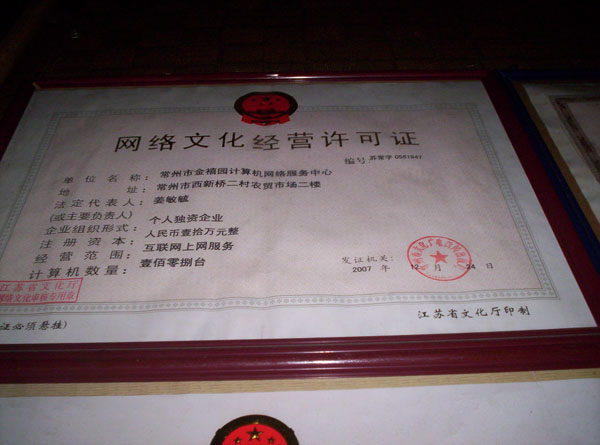 网络文化经营许可证
编号 苏常字 0501641
单位名称：常州市金禧园计算机网络服务中心
地址：常州市西新桥二村农贸市场二楼
法定代表人：姜敏敏
(或主要负责人)
企业组织形式：个人独资企业
注册资本：人民币壹拾万元整
经营范围：互联网上网服务
计算机数量：壹佰零捌台
发证机关：
2007 年 12 月 24 日
江苏省文化厅
网络文化审核专用章
证必须悬挂)
江苏省文化厅印制